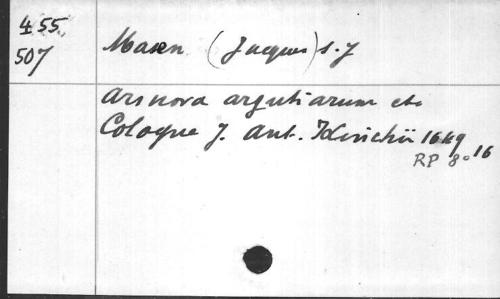 455
507
Masen (Jacques) s. J
Ars nova argutiarum etc
Cologne J. Ant. Kinchii 1649
RP 8° 16